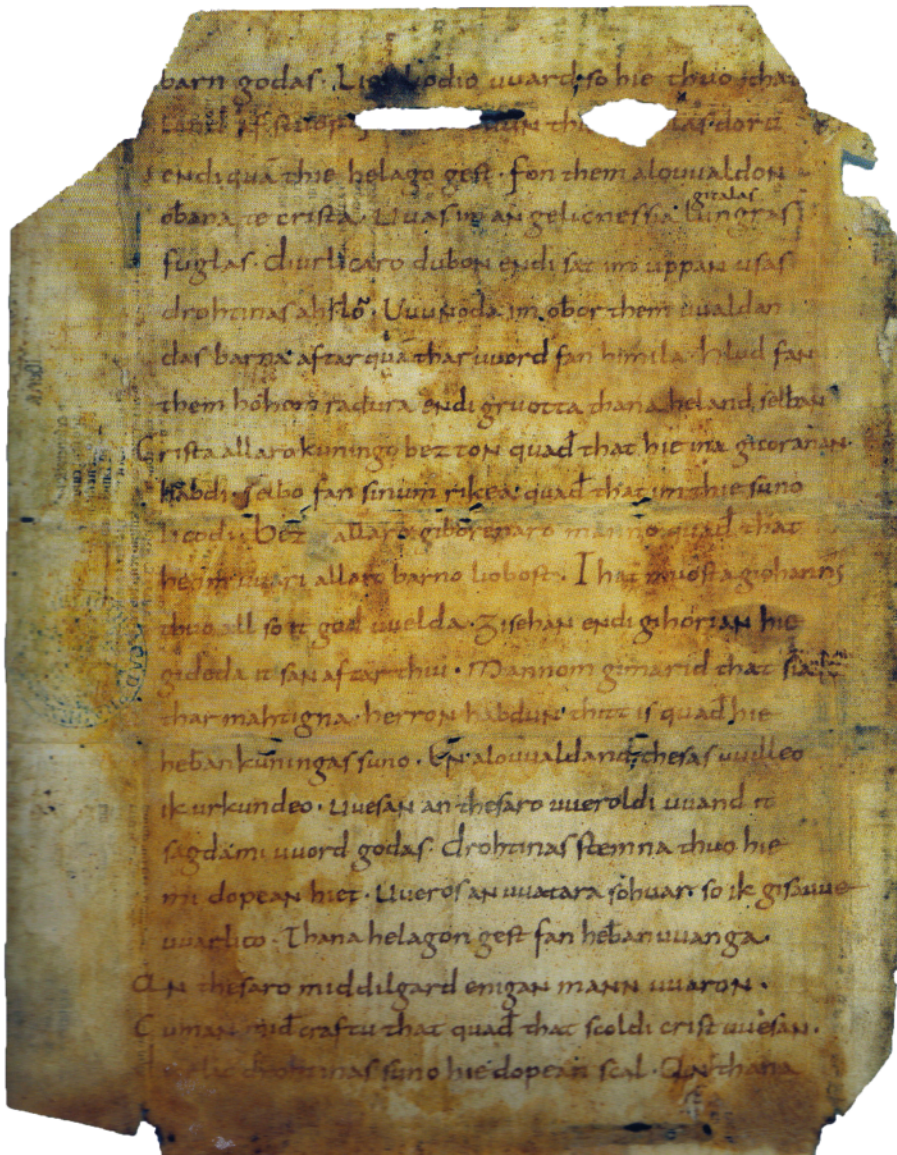 barn godas. Lio  liodio uuard, so hie thuo that
land af stuop  doru
endi quā thie helago gest. fon them alouualdon
oƀana te crista. Uuas im an gelicnessia lungras gitalas
fuglas. diurlicaro duƀon endi sat im uppan usas
drohtinas ahslō. Uuunoda im oƀor them uualdan
das barna. aftar quā thar uuord fan himila. hlud fan
them hohom radura endi gruotta thana heland, selƀan
Crista allaro kuningo bezton quađ that hie ina gicoranan.
habdi. selƀo fan sinum rikea. quađ that im thie suno
licodi. bez allaro giboranaro manno. quađ that
he im uuari allaro barno lioƀost. That muosta giohannˢ
thuo all so it god uuelda. Gisehan endi gihorian hie
gideda it san aftar thiu. Mannom gimarid that sia
thar mahtigna. herron habdun. thitt is quađ hie
heƀankuningas suno. En alouualdand, thesas uuilleo
ik urkundeo. uuesan an thesaro uueroldi uuand it
sagda mi uuord godas. drohtinas stemna thuo hie
mi dopean hiet. Uueros an uuatara so huar. so ik gisauue
uuarlico. Thana helagon gest fan heƀanuuanga.
An thesaro middilgard enigan mann uuaron.
Cuman mid craftu that quađ that scoldi crist uuesan.
diurlic drohtinas suno hie dopean scal. An thana